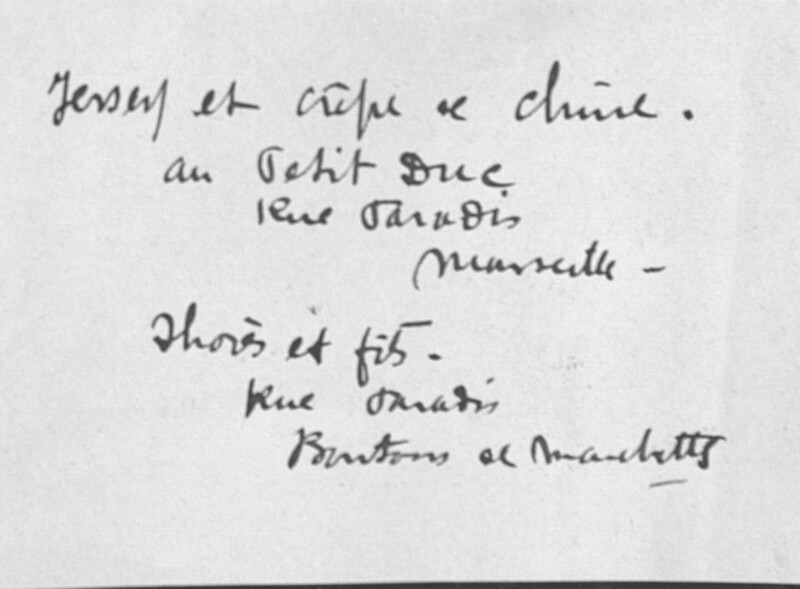 Jersey et crêpe de chine.
au Petit Duc
Rue Paradis
Marseille -
et fils.
Rue Paradis
Boutons de Manchettes